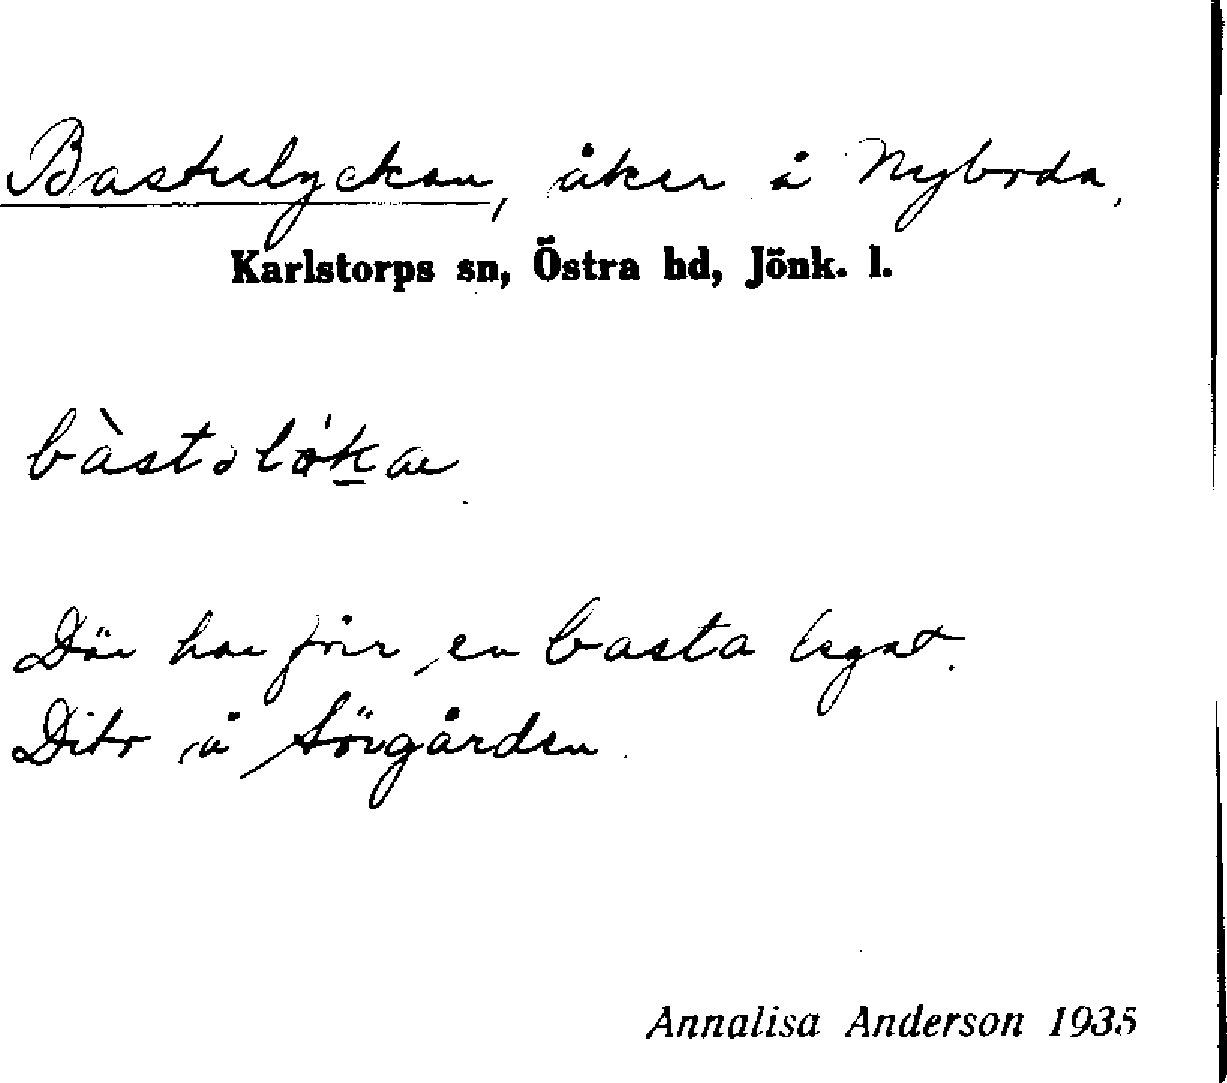 Bastulyckan, åker å Nyboda,
Karlstorps sn, Östra hd, Jönk. l.
Där har förr en basta legat.
Dito å Sörgården.
Annalisa Anderson 1935